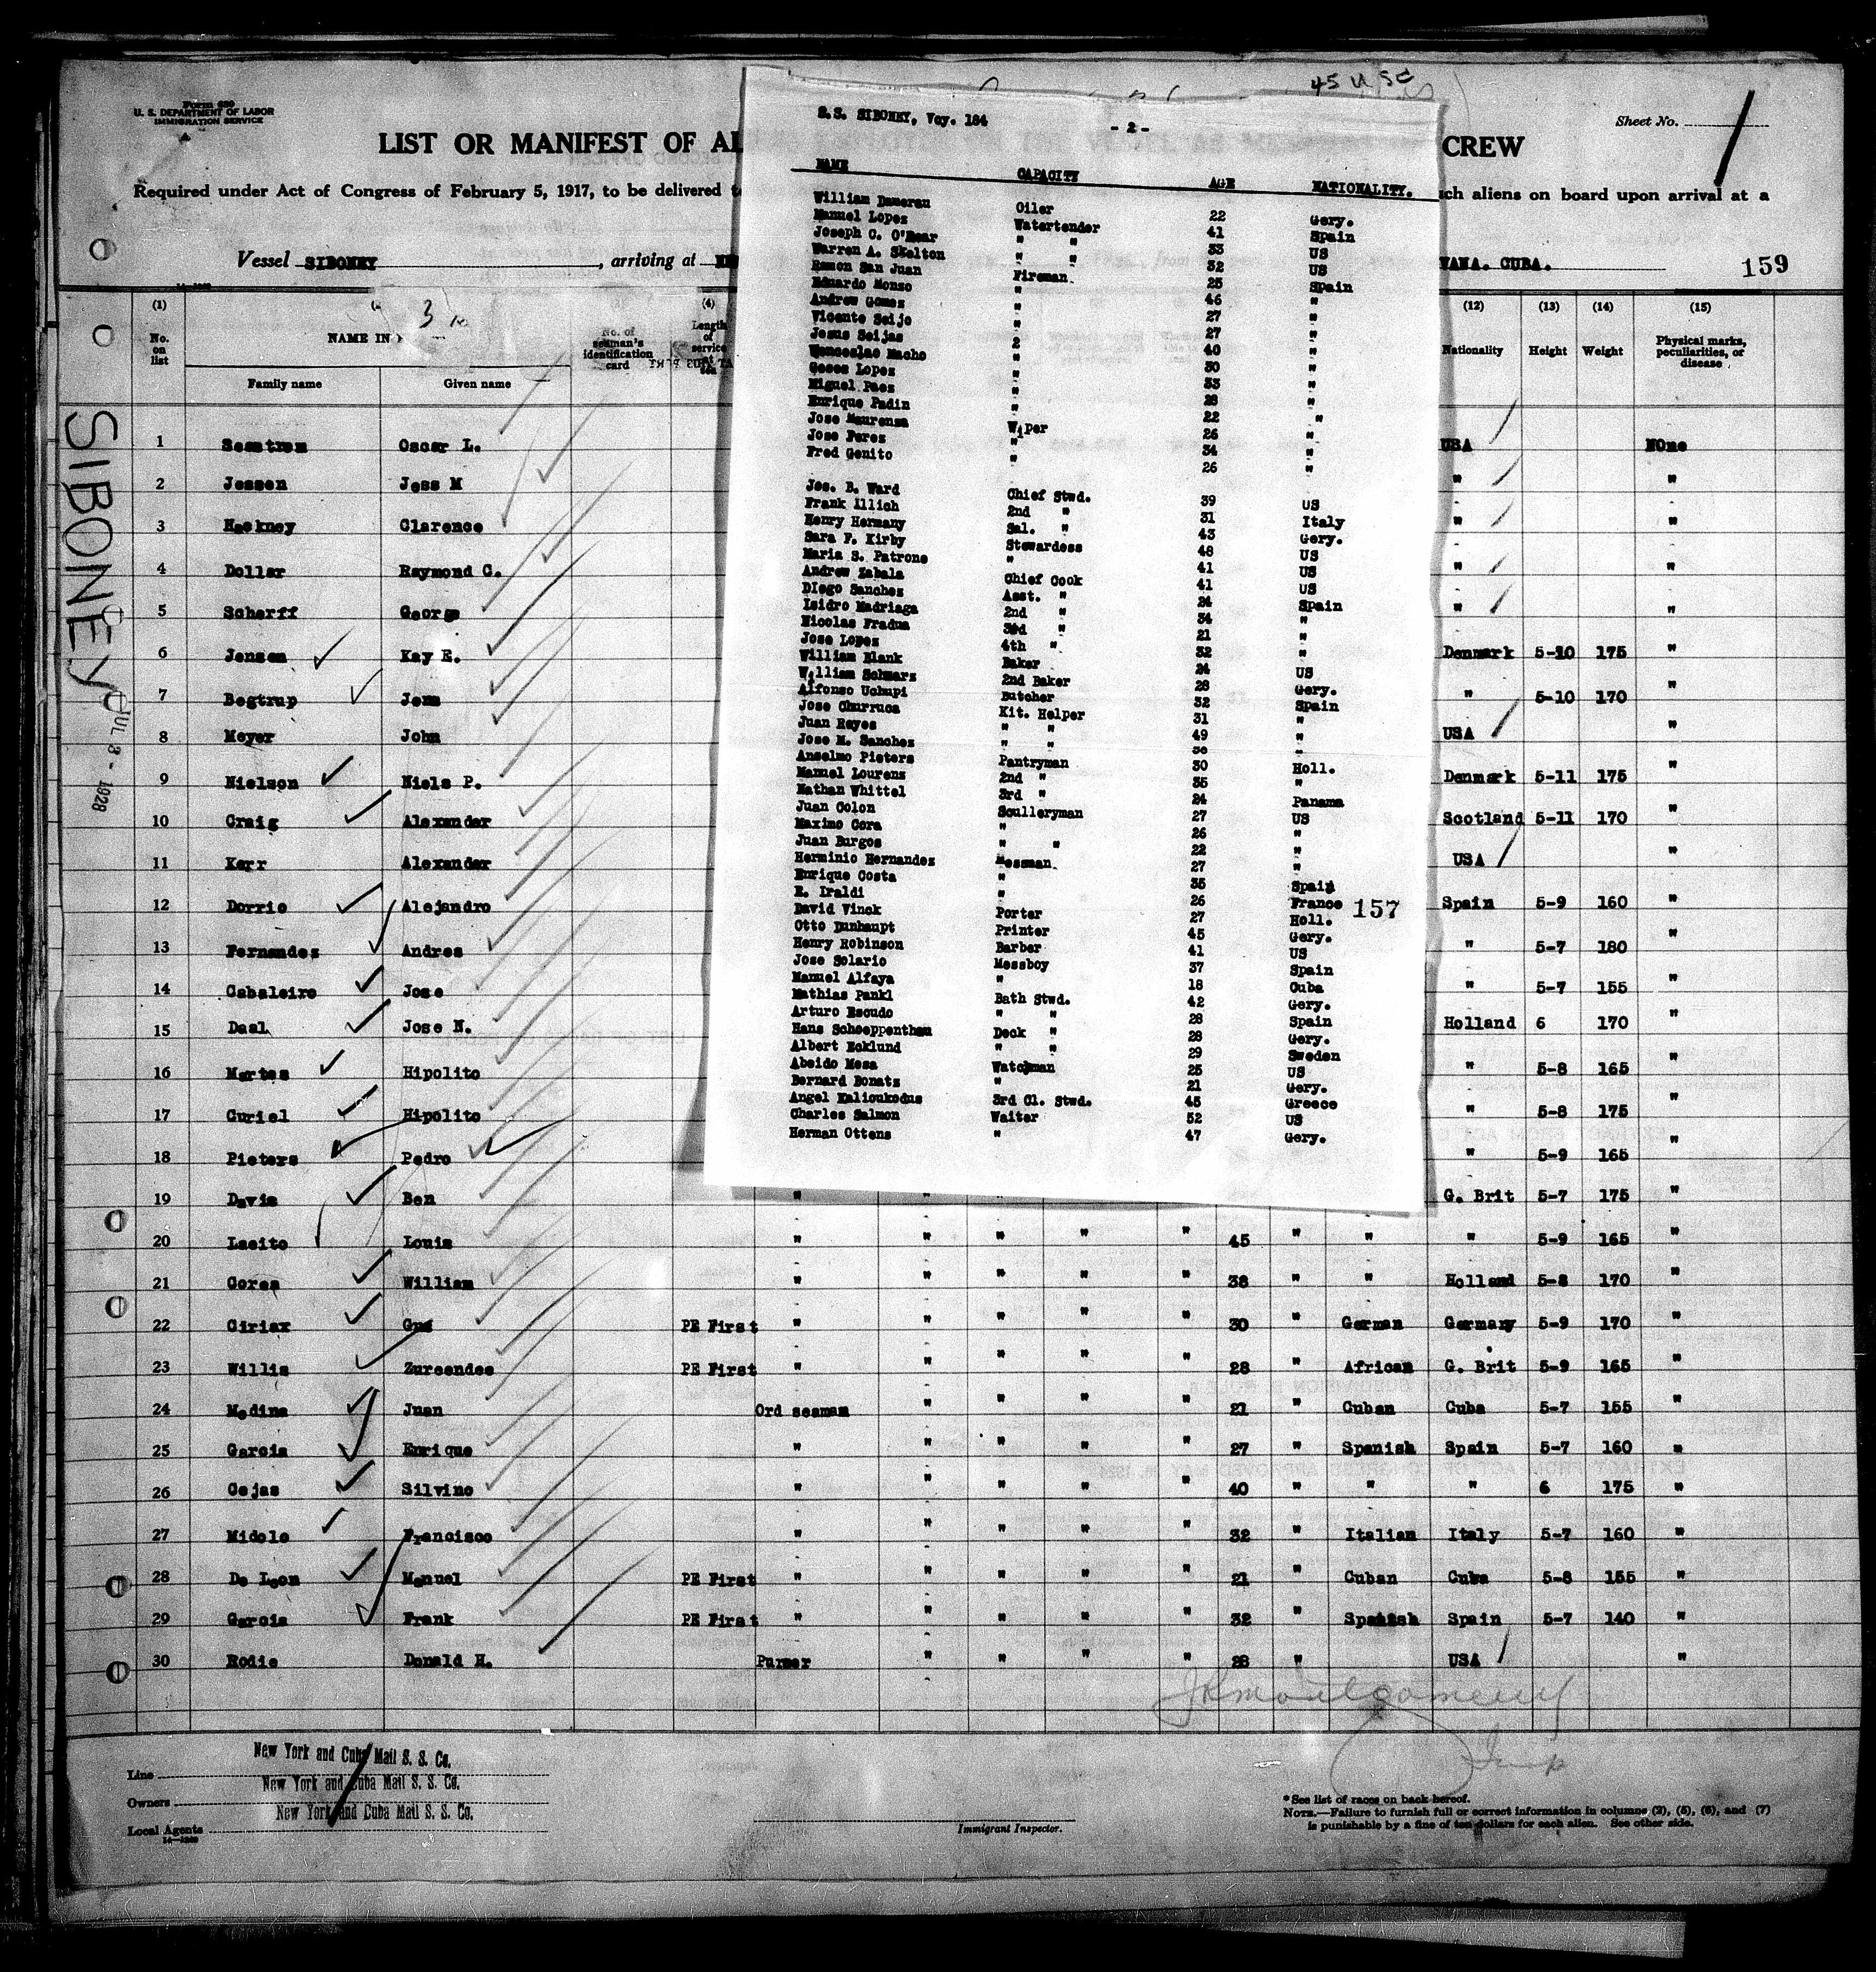 Form 680
U. S. DEPARTMENT OF LABOR
IMMIGRATION SERVICE
45 U SC
Sheet No. 1
LIST OR MANIFEST OF AL CREW
Required under Act of Congress of February 5, 1917, to be delivered t ch aliens on board upon arrival at a
Vessel SIBONEY, arriving at NE VANA. CUBA.
159
(1) (4) (12) (13) (14) (15)
No. on list NAME IN No. of seaman's identification card Length of service at sea Nationality Height Weight Physical marks, peculiarities, or disease
Family name Given name
SIBONEY
JUL 3 - 1928
1 Seastrom Oscar L. USA NOne
2 Jessen Jess M " "
3 Hackney Clarence " "
4 Dollar Raymond C. " "
5 Scharff George " "
6 Jensen Kay E. Denmark 5-10 175 "
7 Begtrup Jens " 5-10 170 "
8 Meyer John USA "
9 Nielson Niels P. Denmark 5-11 175 "
10 Craig Alexander Scotland 5-11 170 "
11 Karr Alexander USA "
12 Dorrio Alejandro Spain 5-9 160 "
13 Fernandez Andres " 5-7 180 "
14 Cabaleiro Jose " 5-7 155 "
15 Daal Jose N. Holland 6 170 "
16 Martes Hipolito " 5-8 165 "
17 Curiel Hipolito " 5-8 175 "
18 Pieters Pedro " 5-9 165 "
19 Davis Ben " " G. Brit 5-7 175 "
20 Lacito Louis " " " " " 45 " " " 5-9 165 "
21 Corea William " " " " " 38 " " Holland 5-8 170 "
22 Ciriax Gus PE First " " " " " 30 " German Germany 5-9 170 "
23 Willis Zureendee PE First " " " " " 28 " African G. Brit 5-9 165 "
24 Medina Juan Ord seaman " " " " 21 " Cuban Cuba 5-7 155 "
25 Garcia Enrique " " " " " 27 " Spanish Spain 5-7 160 "
26 Cejas Silvino " " " " " 40 " " " 6 175 "
27 Midole Francisco " " " " " 32 " Italian Italy 5-7 160 "
28 De Leon Manuel PE First " " " " " 21 " Cuban Cuba 5-8 155 "
29 Garcia Frank PE First " " " " " 32 " Spanish Spain 5-7 140 "
30 Rodie Donald H. Purser " " " " 28 " USA "
JRMontgomery
Insp
Line New York and Cuba Mail S. S. Co.
Owners New York and Cuba Mail S. S. Co.
Local Agents New York and Cuba Mail S. S. Co.
Immigrant Inspector.
* See list of races on back hereof.
NOTE.—Failure to furnish full or correct information in columns (2), (5), (6), and (7)
is punishable by a fine of ten dollars for each alien. See other side.
S.S. SIBONEY, Voy. 184
- 2 -
NAME CAPACITY AGE NATIONALITY.
William Dameran Oiler 22 Gery.
Manuel Lopez Watertender 41 Spain
Joseph C. O'Rear " " 33 US
Warren A. Skelton " " 32 US
Ramon San Juan Fireman 25 Spain
Eduardo Monso " 46 "
Andrew Gomez " 27 "
Vicente Seijo " 27 "
Jesus Seijas 2 40 "
Wenceslao Macho " 30 "
Goses Lopez " 33 "
Miguel Paez " 28 "
Enrique Padin " 22 "
Jose Maurensa Wiper 26 "
Jose Perez " 34 "
Fred Genito " 26 "
Jos. B. Ward Chief Stwd. 39 US
Frank Illich 2nd " 31 Italy
Henry Hermany Sal. " 43 Gery.
Sara F. Kirby Stewardess 48 US
Maria S. Patrone " 41 US
Andrew Zabala Chief Cook 41 US
DIego Sanchez Asst. " 24 Spain
Isidro Madriaga 2nd " 34 "
Nicolas Fradua 3rd " 21 "
Jose Lopez 4th " 32 "
William Blank Baker 24 US
William Schwarz 2nd Baker 28 Gery.
Alfonso Uchupi Butcher 32 Spain
Jose Churruca Kit. Helper 31 "
Juan Reyes " " 49 "
Jose M. Sanchez " " "
Anselmo Pieters Pantryman 30 Holl.
Manuel Lourens 2nd " 35 "
Nathan Whittel 3rd " 24 Panama
Juan Colon Sculleryman 27 US
Maximo Cora " 26 "
Juan Burgos " " 22 "
Herminio Hernandez Messman 27 "
Enrique Costa " 35 Spain
E. Iraldi " 26 France
David Vinck Porter 27 Holl.
Otto Dunhaupt Printer 45 Gery.
Henry Robinson Barber 41 US
Jose Solario Messboy 37 Spain
Manuel Alfaya " 18 Cuba
Mathias Pankl Bath Stwd. 42 Gery.
Arturo Escudo " " 28 Spain
Hans Schoeppenthan Deck " 28 Gery.
Albert Ecklund " " 29 Sweden
Abeido Mesa Watchman 25 US
Bernard Bonatz " 21 Gery.
Angel Kalioukodus 3rd Cl. Stwd. 45 Greece
Charles Salmon Waiter 52 US
Herman Ottens " 47 Gery.
157